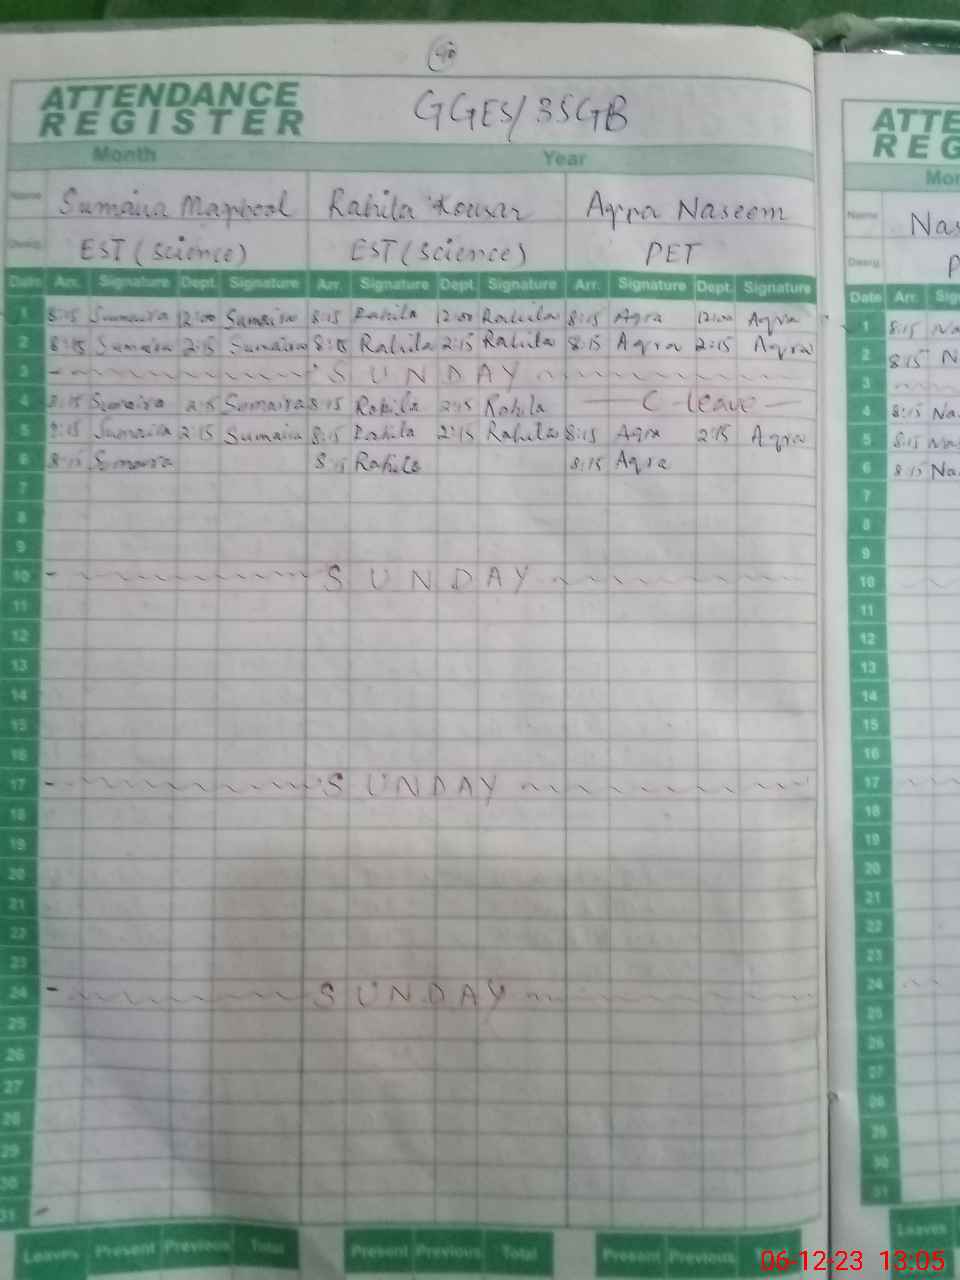 40
ATTENDANCE REGISTER GGES/35GB
Month Year
Name Sumaira Maqbool Rahila Kousar Aqra Naseem
Desig. EST (science) EST (science) PET
Date Arr. Signature Dept. Signature Arr. Signature Dept. Signature Arr. Signature Dept. Signature
1 8:15 Sumaira 12:00 Sumaira 8:15 Rahila 12:00 Rahila 8:15 Aqra 12:00 Aqra
2 8:15 Sumaira 2:15 Sumaira 8:15 Rahila 2:15 Rahila 8:15 Aqra 2:15 Aqra
3 SUNDAY
4 8:15 Sumaira 2:15 Sumaira 8:15 Rahila 2:15 Rahila C leave
5 8:15 Sumaira 2:15 Sumaira 8:15 Rahila 2:15 Rahila 8:15 Aqra 2:15 Aqra
6 8:15 Sumaira 8:15 Rahila 8:15 Aqra
7
8
9
10 SUNDAY
11
12
13
14
15
16
17 SUNDAY
18
19
20
21
22
23
24 SUNDAY
25
26
27
28
29
30
31
Leaves Present Previous Total Present Previous Total Present Previous
ATTE
REG
Mon
Name Nas
Desig. P
Date Arr. Sig
1 8:15 Na
2 8:15 N
3
4 8:15 Na
5 8:15 Na
6 8:15 Na
7
8
9
10
11
12
13
14
15
16
17
18
19
20
21
22
23
24
25
26
27
28
29
30
31
Leaves P
06-12-23 13:05